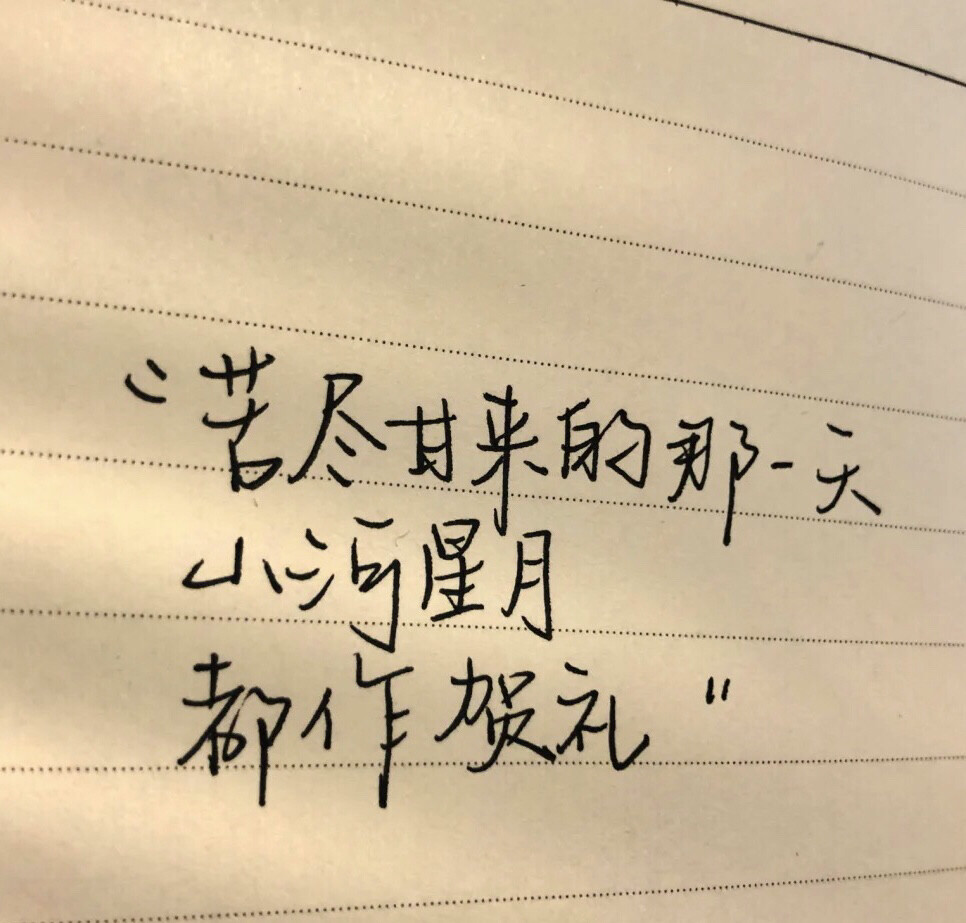 “苦尽甘来的那一天
山河星月
都作贺礼”